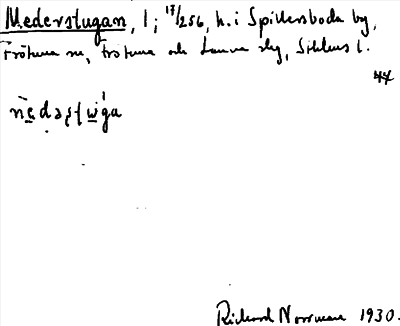 Nederstugan, 1; 17/256, h. i Spillersboda by,
Frötuna sn, Frötuna och Länna skg, Sthlms l.
44
Richard Norrman 1930.